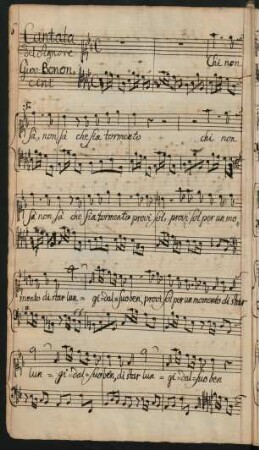 Cantata
Del Signore
Gio: Bonon
cini
Chi non
sà, non sà che sia tormento chi non
sà non sà che sia tormento provi sol, provi sol per un mo,
mento di star lun = gi = dal = suo ben, provi sol per un momento di star
lun = gi = dal = suo ben, di star lun = gi = dal = suo ben